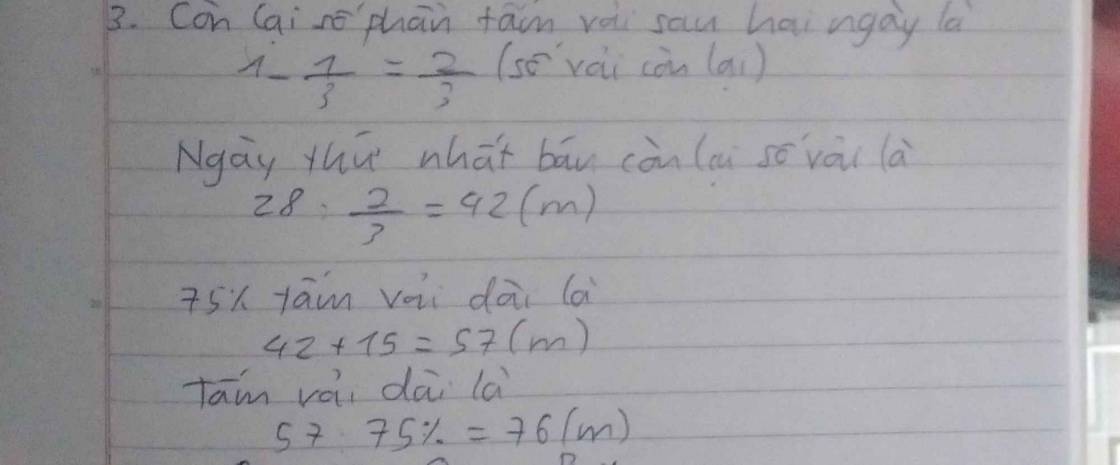 3. Còn lại số phần tấm vải sau hai ngày là
1 - 1/3 = 2/3 (số vải còn lại)
Ngày thứ nhất bán còn lại số vải là
28 : 2/3 = 42 (m)
75% tấm vải dài là
42 + 15 = 57 (m)
Tấm vải dài là
57 : 75% = 76 (m)